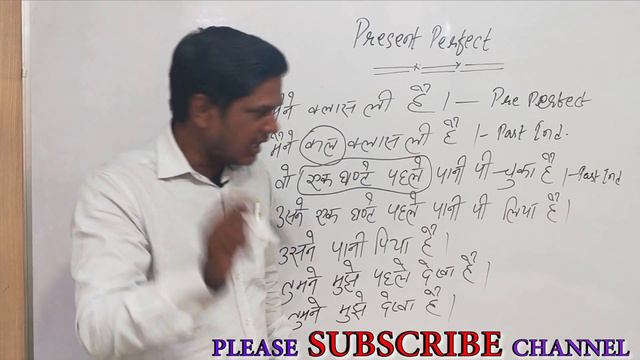 Present Perfect
मैने क्लास ली है । – Pre Perfect
मैने कल क्लास ली है । - Past Ind.
वो एक घण्टे पहले पानी पी चुका है । - Past Ind
उसने एक घण्टे पहले पानी पी लिया है ।
उसने पानी पिया है ।
तुमने मुझे पहले देखा है ।
तुमने मुझे देखा है ।
PLEASE SUBSCRIBE CHANNEL